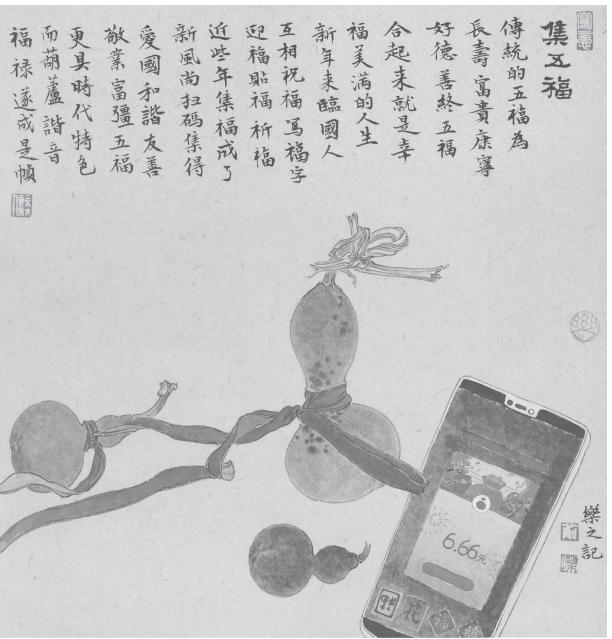 集五福
傳統的五福為
長壽富貴康寧
好德善終五福
合起来就是幸
福美滿的人生
新年来臨國人
互相祝福寫福字
迎福貼福祈福
近些年集福成了
新風尚扫碼集得
愛國和諧友善
敬業富彊五福
更具時代特色
而葫蘆諧音
福禄遂成是幀
樂之記
6.66元
花
福